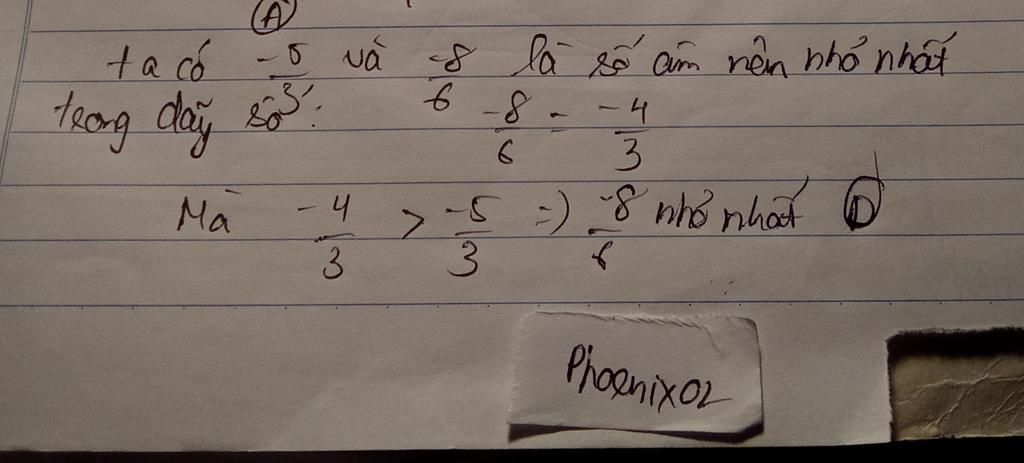 (A)
ta có -5/3 và -8/6 là số âm nên nhỏ nhất
trong dãy số: -8/6 = -4/3
Mà -4/3 > -5/3 => -8/6 nhỏ nhất (D)
Phoenix02